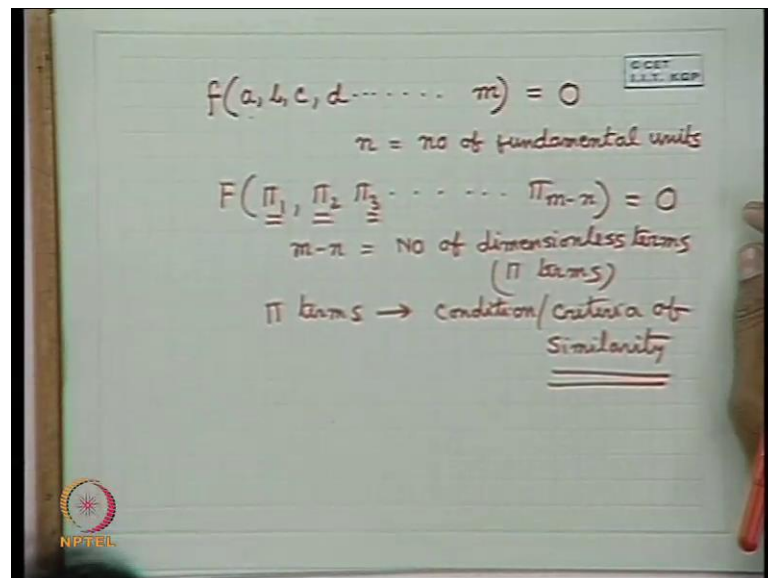 f(a, b, c, d ....... m) = 0
© CET
I.I.T. KGP
n = no of fundamental units
F(π₁, π₂ π₃ ...... π_{m-n}) = 0
m-n = No of dimensionless terms
(π terms)
π terms → condition/criteria of
similarity
NPTEL